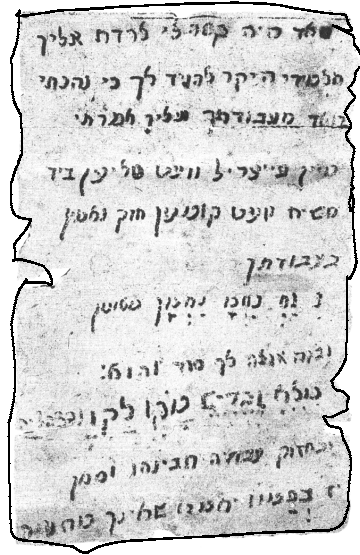 מאד היה קשה לי לרדת אליך
תלמידי היקר להגיד לך כי נהנתי
מאד מעבודתך ועליך אמרתי
מיין פייעריל וועט טליען ביז
משיח וועט קומען חזק ואמץ
בעבודתך
נ נח נחמ נחמן מאומן
ובזה אגלה לך סוד והוא:
מלא וגדיש מקו לקו
ובחזוק עבודה תבינהו וסימן
יז בתמוז יאמרו שאינך מתענה